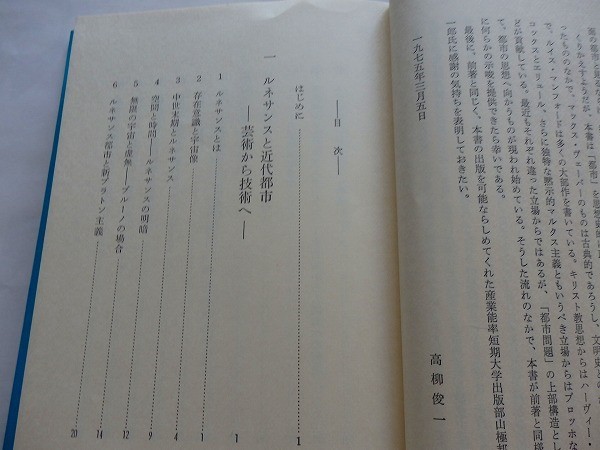 窓の都市と見なが
くりかえすようだが、本書は「都市」を思想史的に
ったもののなかで、マックス・ヴェーバーのものは古典的であろうし、文明史との
で、ルイス・マンフォードは多くの大部作を書いている。キリスト教思想からはハーヴィー・
コックスとエリュール、さらに独特な黙示的マルクス主義ともいうべき立場からはブロッホな
どが貢献している。最近もそれぞれ違った立場からではあるが、「都市問題」の上部構造とし
て、都市の思想へ向かうものが現われ始めている。そうした流れのなかで、本書が前著と同様
に何らかの示唆を提供できたら幸いである。
最後に、前著と同じく、本書の出版を可能ならしめてくれた産業能率短期大学出版部山極邦
一郎氏に感謝の気持ちを表明しておきたい。
一九七五年三月五日
高柳俊一
――目 次――
はじめに……1
一 ルネサンスと近代都市……1
――芸術から技術へ――
1 ルネサンスとは……1
2 存在意識と宇宙像……4
3 中世末期とルネサンス……9
4 空間と時間――ルネサンスの明暗……12
5 無限の宇宙と虚無――ブルーノの場合……14
6 ルネサンス都市と新プラトン主義……20